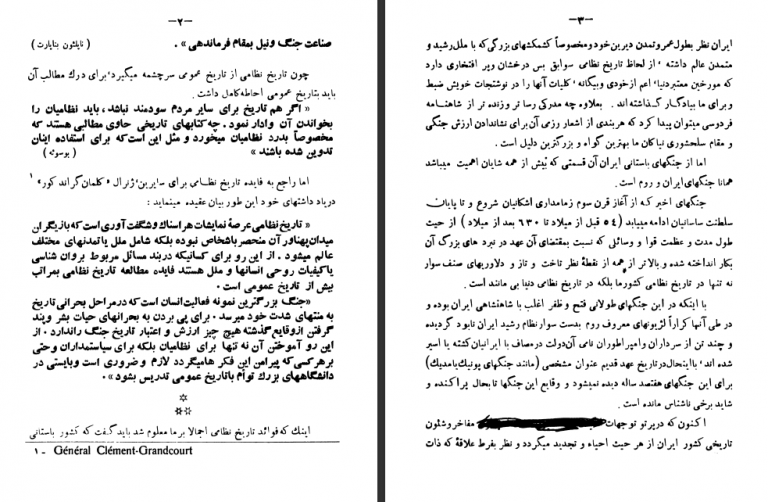 -۲-
صناعت جنگ ونیل بمقام فرماندهی» . ( ناپلئون بناپارت )
چون تاریخ نظامی از تاریخ عمومی سرچشمه میگیرد٬ برای درك مطالب آن
باید بتاریخ عمومی احاطه کامل داشت .
« اگر هم تاریخ برای سایر مردم سودمند نباشد، باید نظامیان را
بخواندن آن وادار نمود . چه کتابهای تاریخی حاوی مطالبی هستند که
مخصوصاً بدرد نظامیان میخورد و مثل این است که برای استفاده اینان
تدوین شده باشند » ( بوسوئه )
اما راجع به فایده تاریخ نظامی برای سایرین٬ ژنرال «کلمان گراند کور» ۱
در یاد داشتهای خود این طور بیان عقیده مینماید :
« تاریخ نظامی عرصهٔ نمایشات هراسناك و شگفت آوری است که بازیگران
میدان پهناور آن منحصر باشخاص نبوده بلکه شامل ملل یا تمدنهای مختلف
عالم میشود . از این رو برای کسانیکه دربند مسائل مربوط بروان شناسی
یا کیفیات روحی انسانها و ملل هستند فایده مطالعه تاریخ نظامی بمراتب
بیش از تاریخ عمومی است .
«جنگ بزرگترین نمونه فعالیت انسان است که در مراحل بحرانی تاریخ
به منتهای شدت خود میرسد . برای پی بردن به بحرانهای حیات بشر و پند
گرفتن از وقایع گذشته هیچ چیز ارزش و اعتبار تاریخ جنگ را ندارد . از
این رو آموختن آن نه تنها برای نظامیان بلکه برای سیاستمداران و حتی
بر هر کسی که پیرامن این فکر ها میگردد لازم و ضروری است و بایستی در
دانشگاههای بزرك توأم با تاریخ عمومی تدریس بشود»
اینك که فوائد تاریخ نظامی اجمالا بر ما معلوم شد باید گفت که کشور باستانی
۱ - Général Clément-Grandcourt
-۳-
ایران نظر بطول عمر و تمدن دیرین خود و مخصوصاً کشمکشهای بزرگی که با ملل رشید و
متمدن عالم داشته ٬ از لحاظ تاریخ نظامی سوابق بس درخشان و پر افتخاری دارد
که مورخین معتبر دنیا٬ اعم از خودی و بیگانه ٬ کلیات آنها را در نوشتجات خویش ضبط
و برای ما بیادگار گذاشته اند . بعلاوه چه مدرکی رسا تر و زنده تر از شاهنامه
فردوسی میتوان پیدا کرد که هر بندی از اشعار رزمی آن برای نشاندادن ارزش جنگی
و مقام سلحشوری نیاکان ما بهترین گواه و بزرگترین دلیل است .
اما از جنگهای باستانی ایران آن قسمتی که بیش از همه شایان اهمیت میباشد
همانا جنگهای ایران و روم است .
جنگهای اخیر که از آغاز قرن سوم زمامداری اشکانیان شروع و تا پایان
سلطنت ساسانیان ادامه مییابد ( ٥٤ قبل از میلاد تا ٦٣٠ بعد از میلاد ) از حیث
طول مدت و عظمت قوا و وسائلی که نسبت بمقتضای آن عهد در نبرد های بزرگ آن
بکار انداخته شده و بالاتر از همه از نقطهٔ نظر تاخت و تاز و دلاوریهای صنف سوار
نه تنها در تاریخ نظامی کشورما بلکه در تاریخ نظامی دنیا بی مانند است .
با اینکه در این جنگهای طولانی فتح و ظفر اغلب با شاهنشاهی ایران بوده و
در طی آنها کراراً لژیونهای معروف روم بدست سوار نظام رشید ایران نابود گردیده
و چند تن از سرداران و امپراطوران نامی آن دولت در مصاف با ایرانیان کشته یا اسیر
شده اند٬ با اینحال در تاریخ عهد قدیم عنوان مشخصی (مانند جنگهای پونیك یا مدیك)
برای این جنگهای هفتصد ساله دیده نمیشود و وقایع این جنگها تا بحال پراکنده و
شاید برخی ناشناس مانده است .
اکنون که در پرتو توجهات مفاخر و شئون
تاریخی کشور ایران از هر حیث احیاء و تجدید میگردد و نظر بفرط علاقهٔ که ذات